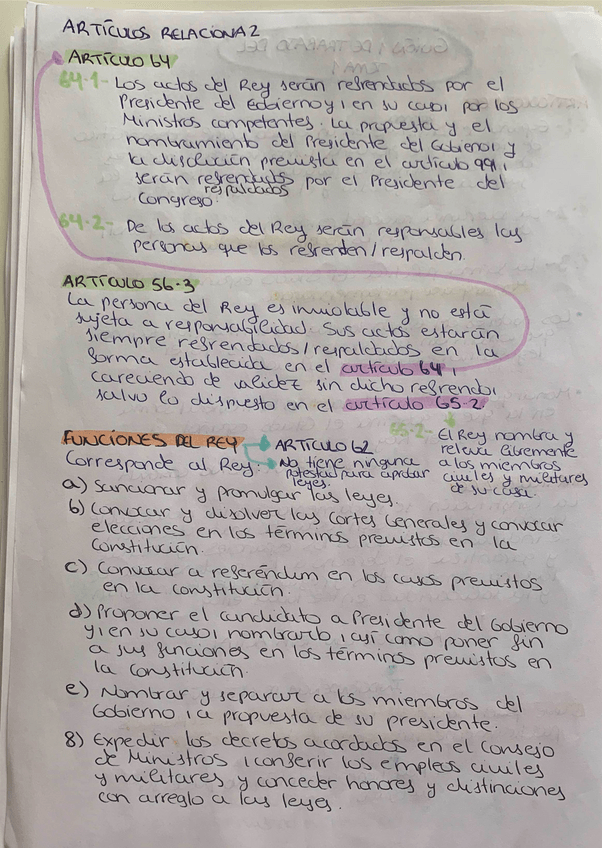 ARTÍCULOS RELACIONA2
ARTÍCULO 64
64.1- Los actos del Rey serán refrendados por el
Presidente del Gobierno y, en su caso, por los
Ministros competentes. La propuesta y el
nombramiento del Presidente del Gobierno, y
la disolución prevista en el artículo 99,
serán refrendados por el Presidente del
respaldados
Congreso.
64.2- De los actos del Rey serán responsables las
personas que los refrenden/respalden.
ARTÍCULO 56.3
La persona del Rey es inviolable y no está
sujeta a responsabilidad. Sus actos estarán
siempre refrendados/respaldados en la
forma establecida en el artículo 64,
careciendo de validez sin dicho refrendo,
salvo lo dispuesto en el artículo 65.2.
65.2- El Rey nombra y
releva libremente
a los miembros
civiles y militares
de su casa.
FUNCIONES DEL REY → ARTÍCULO 62
Corresponde al Rey: → No tiene ninguna
potestad para aprobar
leyes.
a) Sancionar y promulgar las leyes.
b) Convocar y disolver las Cortes Generales y convocar
elecciones en los términos previstos en la
Constitución.
c) Convocar a referéndum en los casos previstos
en la constitución.
d) Proponer el candidato a Presidente del Gobierno
y, en su caso, nombrarlo, así como poner fin
a sus funciones en los términos previstos en
la Constitución.
e) Nombrar y separar a los miembros del
Gobierno, a propuesta de su presidente.
f) Expedir los decretos acordados en el Consejo
de Ministros, conferir los empleos civiles
y militares y conceder honores y distinciones
con arreglo a las leyes.